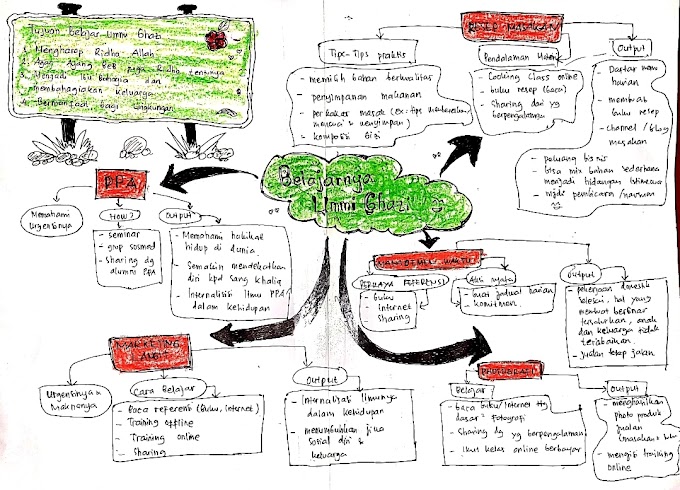 Tujuan belajar Ummi Ghazi
1. Mengharap Ridho Allah
3. Menjadi Ibu Bahagia dan
membahagiakan keluarga
4. Bermanfaat bagi lingkungan
Belajarnya
Ummi Ghazi
PPA
Memahami
Urgensinya
How?
- seminar
- grup sosmed
- sharing dg
alumni PPA
Output
- Memahami hakikat
hidup di dunia.
- Semakin mendekatkan
diri kpd sang khaliq
- Internalisasi Ilmu PPA
dalam kehidupan
Tips-Tips praktis
- memilih bahan berkualitas
- penyimpanan makanan
- perkakas masak (ex: tips
mencuci & menyimpan)
- komposisi gizi
Pendalaman Materi
- Cooking Class online
- buku resep (baca)
- Sharing dg yg
berpengalaman
Output
- Daftar menu
harian
- membuat
buku resep
- channel / blog
masakan
- peluang bisnis
- bisa mix bahan sederhana
menjadi hidangan istimewa
- pembicara /
MANAJEMEN WAKTU
PERKAYA REFERENSI
- buku
- internet
- Sharing
Aksi nyata
- buat jadwal harian
- komitmen
Output
- pekerjaan domestik
selesai, hal yang
membuat berbinar
tersalurkan, anak
dan keluarga tidak
terabaikan.
- jualan tetap jalan
MARKETING
Urgensinya &
Maknanya
Cara Belajar
- Baca referensi (Buku, internet)
- Training offline
- Training online
- Sharing
Output
- Internalisasi ilmunya
dalam kehidupan
- menumbuhkan jiwa
sosial diri &
keluarga
FOTOGRAFI
Belajar
- baca buku/Internet ttg
dasar² fotografi
- Sharing dg yg berpengalaman
- Ikut kelas online berbayar
Output
- menghasilkan
photo produk
jualan
- mengisi training
online